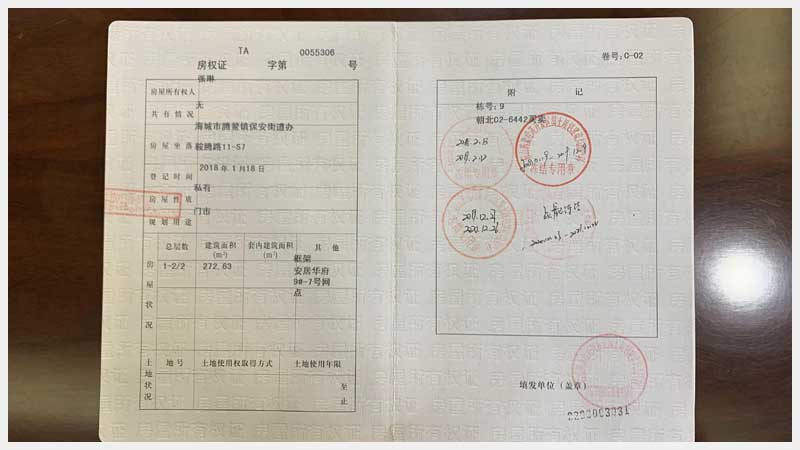 TA 0055306
房权证 字第 号
房屋所有权人 张琳
共有情况 无
房屋坐落 海城市腾鳌镇保安街道办
鞍腾路11-S7
登记时间 2018年1月18日
房屋性质 私有
规划用途 门市
房屋状况
总层数 建筑面积(m²) 套内建筑面积(m²) 其他
1-2/2 272.63 框架
安居华府
9#-7号网
点
土地状况
地号 土地使用权取得方式 土地使用年限
至
止
卷号:C-02
附 记
栋号:9
朝北C2-6442周卖
2018.2.13
冻结专用章
2017.12.27
填发单位（盖章）